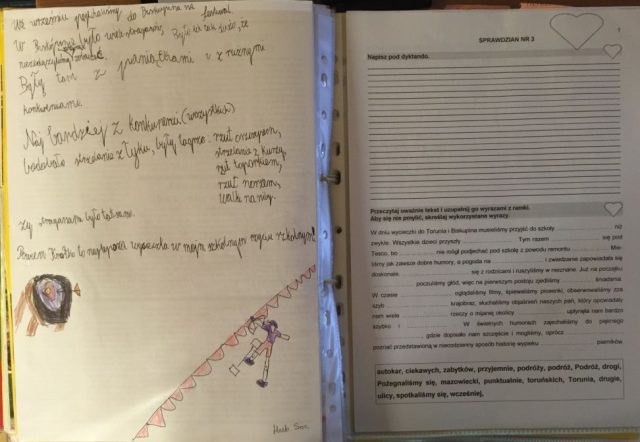 We wrześniu pojechaliśmy do Biskupina na festiwal.
W Biskupinie było wiele straganów, Było ich tak dużo, że
Były tam z pamiątkami i z różnymi
konkursami.
Naj bardziej z konkurencji (wszystkich)
podobało strzelanie z łyku, były łapzo rzut oszczepem,
strzelanie z kuszy,
rzut toporkiem,
rzut nożem,
Walki na miny.
było
to najlepsza wycieczka w moim szkolnym życiu szkolnym!
SPRAWDZIAN NR 3
1
Napisz pod dyktando.
Przeczytaj uważnie tekst i uzupełnij go wyrazami z ramki.
Aby się nie pomylić, skreślaj wykorzystane wyrazy.
W dniu wycieczki do Torunia i Biskupina musieliśmy przyjść do szkoły ... niż
zwykle. Wszystkie dzieci przyszły ... Tym razem ... się pod
Tesco, bo ... nie mógł podjechać pod szkołę z powodu remontu ... Mie-
liśmy jak zawsze dobre humory, a pogoda na ... i zwiedzanie zapowiadała się
doskonale. ... się z rodzicami i ruszyliśmy w nieznane. Już na początku
... poczuliśmy głód, więc na pierwszym postoju zjedliśmy ... śniadanie.
W czasie ... oglądaliśmy filmy, śpiewaliśmy piosenki, obserwowaliśmy zza
szyb ... krajobraz, słuchaliśmy objaśnień naszych pań, który opowiadały
nam wiele ... rzeczy o mijanej okolicy ... upłynęła nam bardzo
szybko i ... W świetnych humorach zajechaliśmy do pięknego
..., gdzie dopisało nam szczęście i mogliśmy, oprócz ...
poznać przedstawioną w niecodzienny sposób historię wypieku ... pierników
autokar, ciekawych, zabytków, przyjemnie, podróży, podróż, Podróż, drogi,
Pożegnaliśmy się, mazowiecki, punktualnie, toruńskich, Torunia, drugie,
ulicy, spotkaliśmy się, wcześniej,